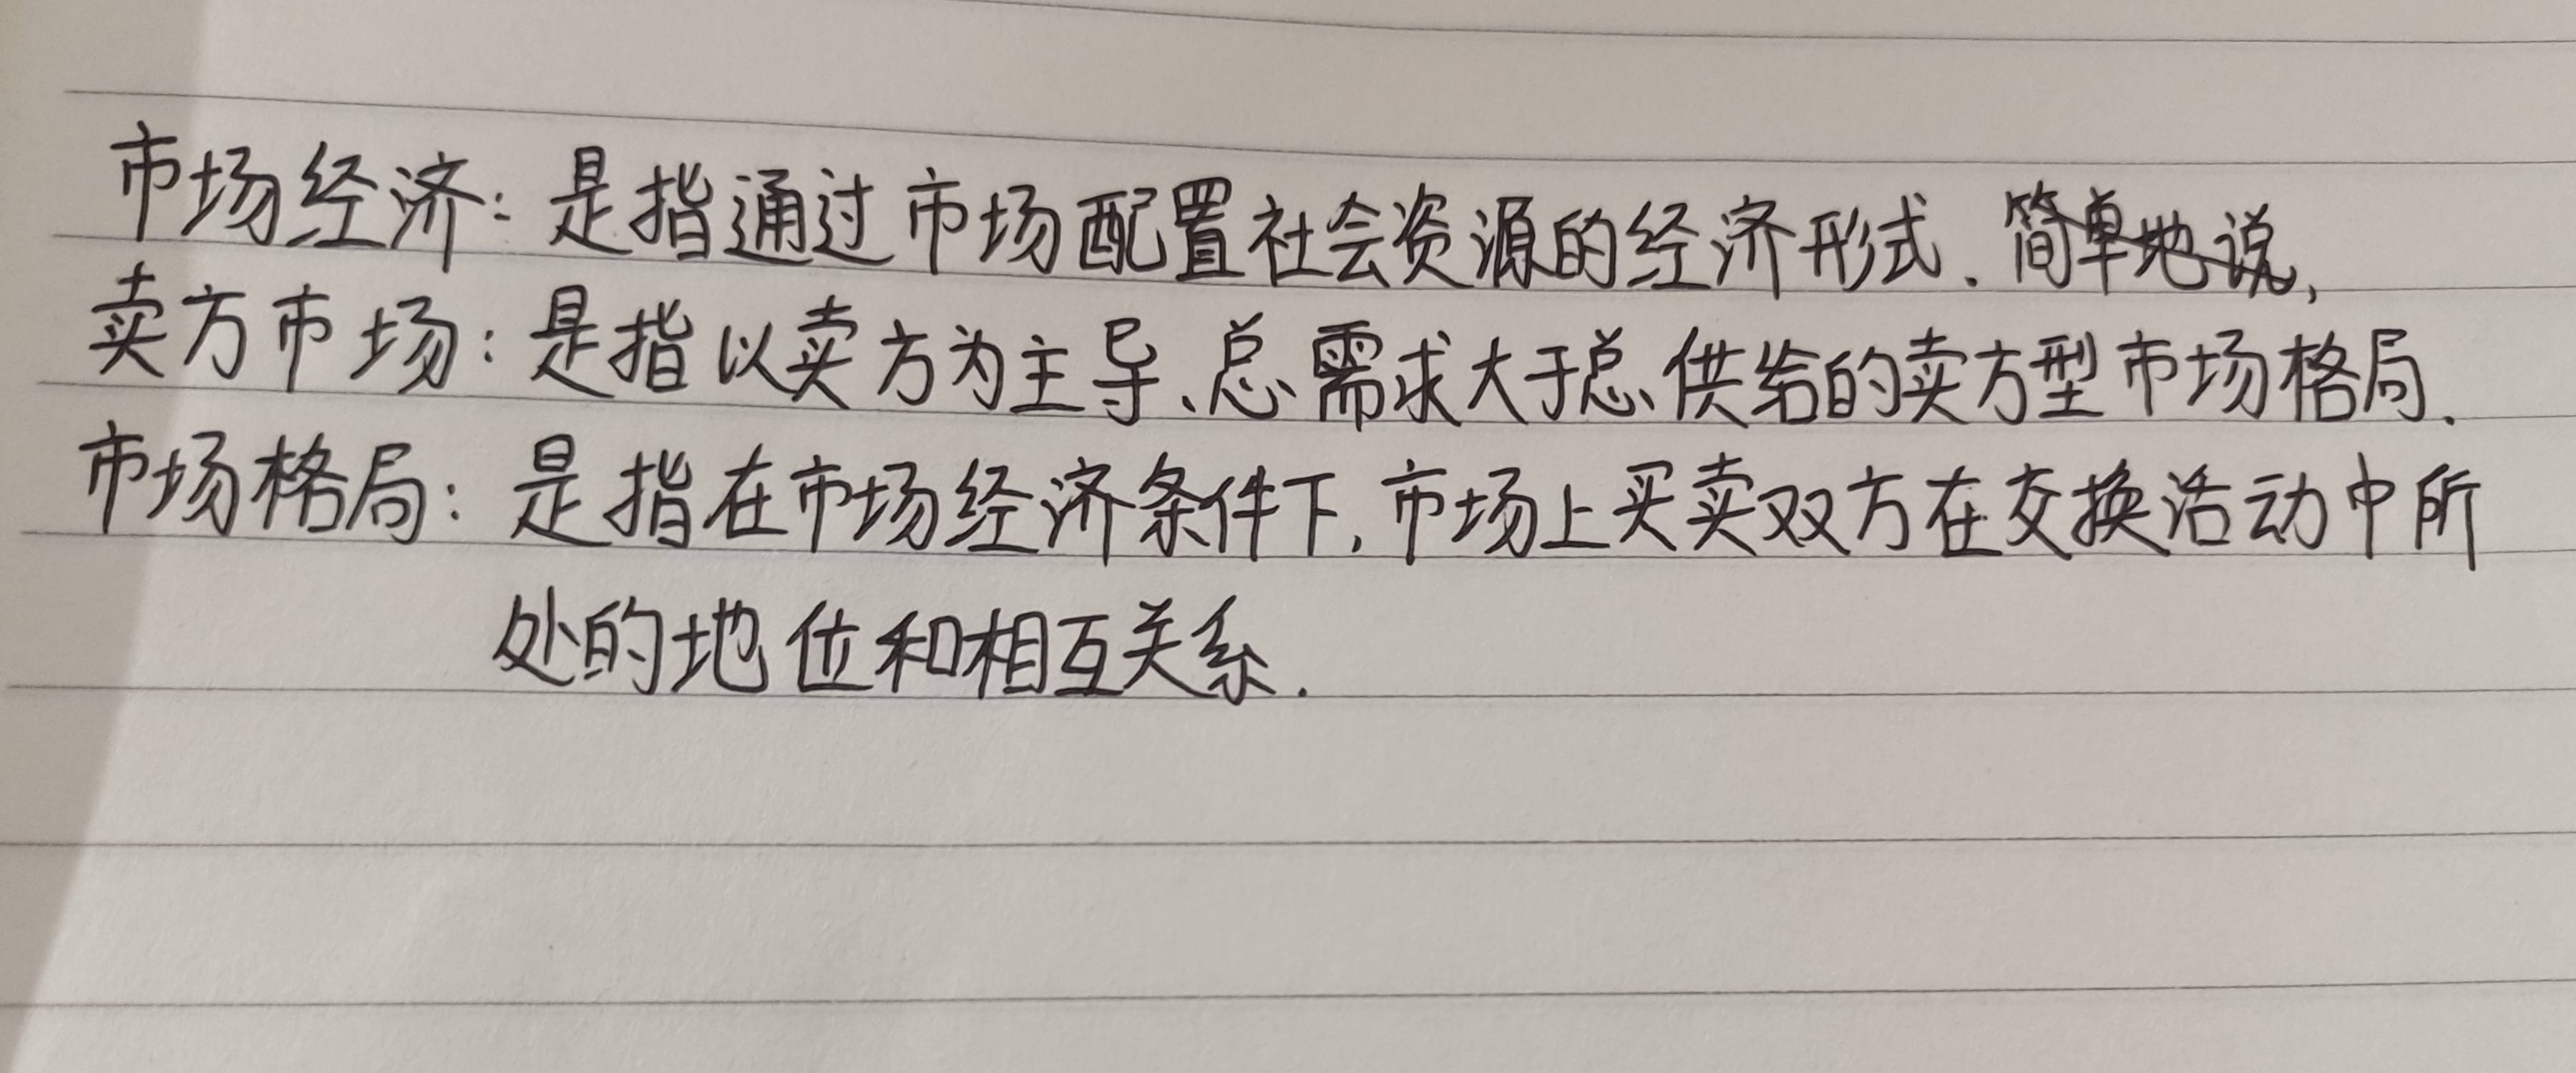 市场经济：是指通过市场配置社会资源的经济形式.简单地说,
卖方市场：是指以卖方为主导、总需求大于总供给的卖方型市场格局.
市场格局：是指在市场经济条件下,市场上买卖双方在交换活动中所
处的地位和相互关系.